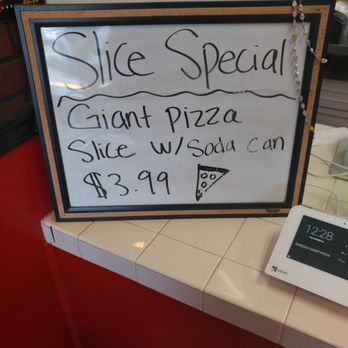 Slice Special
Giant Pizza
Slice w/ Soda Can
$3.99
12:28